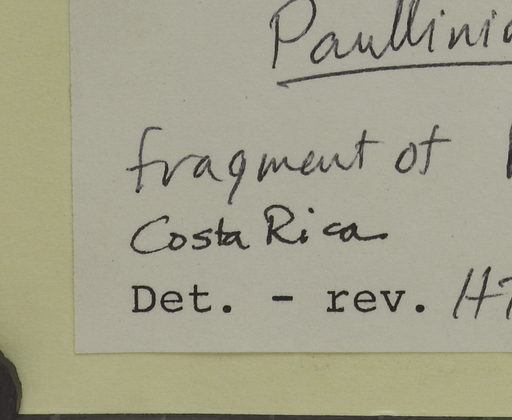 Paullinia
fragment of
Costa Rica
Det. - rev.